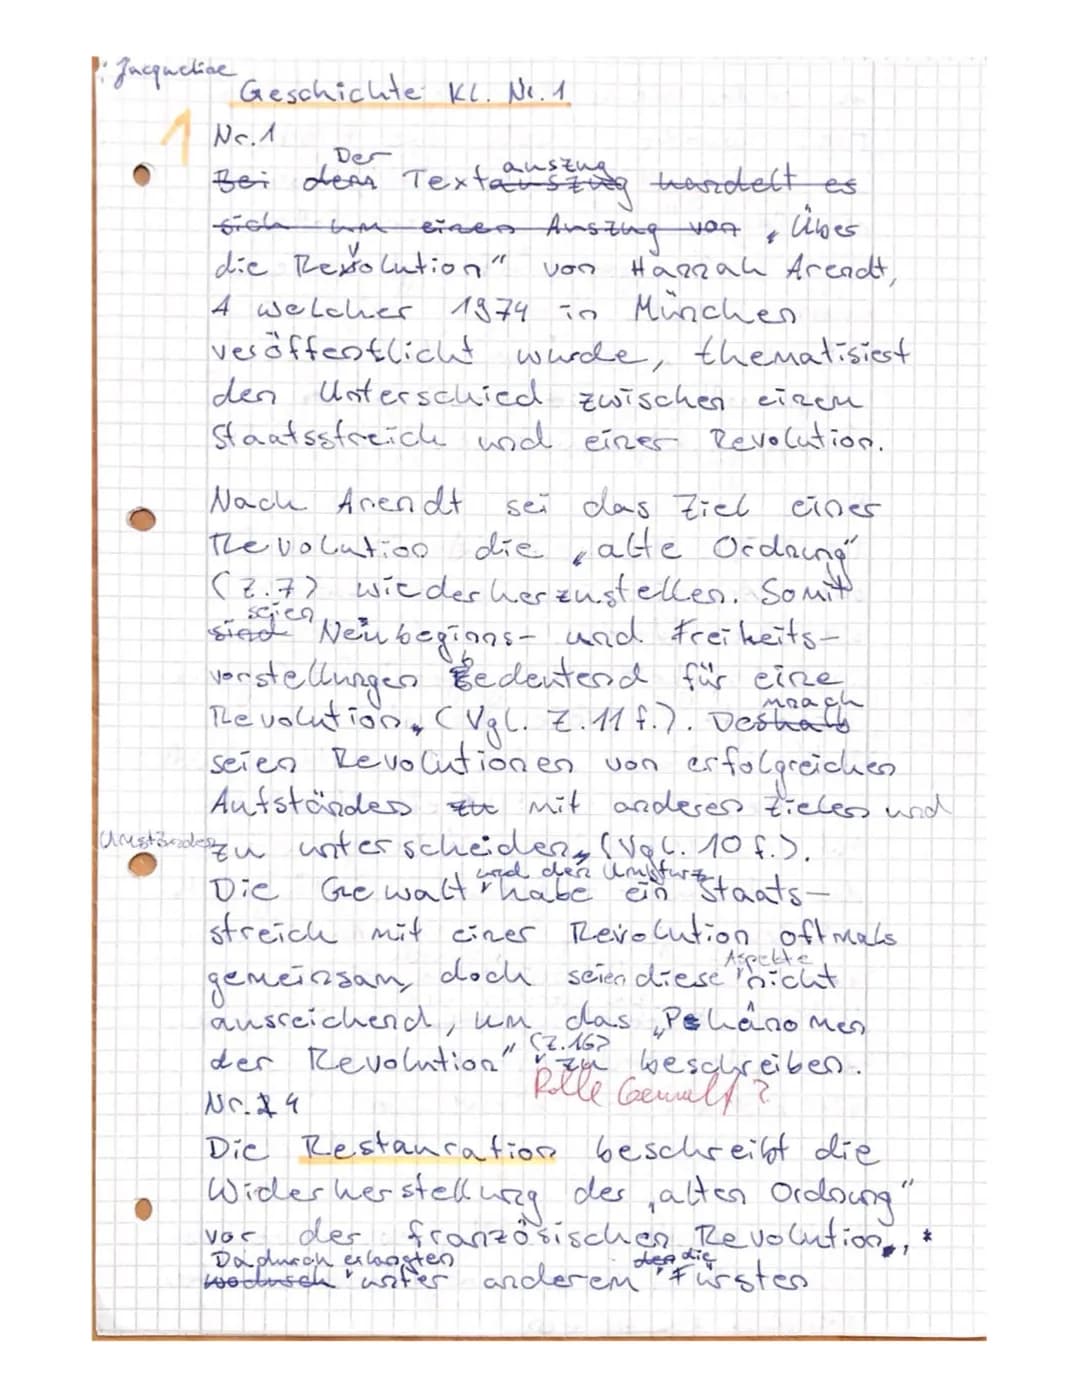 Jacqueline
Geschichte Kl. Nr. 1
1
Nr. 1
Der auszug
Bei dem Textauszug handelt es
sich um einen Auszug von „Über
die Revolution" von Hannah Arendt,
1 welcher 1974 in München
veröffentlicht wurde, thematisiert
den Unterschied zwischen einem
Staatsstreich und einer Revolution.
Nach Arendt sei das Ziel einer
Revolution die „alte Ordnung"
(Z.7) wiederherzustellen. Somit
seien
sind Neubeginns- und Freiheits-
vorstellungen bedeutend für eine
mnach
Revolution. (Vgl. Z. 11 f.). Deshalb
seien Revolutionen von erfolgreichen
Aufständen zu mit anderen Zielen und
Umständen zu unterscheiden, (Vgl. 10 f.).
und den Umsturz
Die Gewalt habe ein Staats-
streich mit einer Revolution oftmals
Aspekte
gemeinsam, doch seien diese nicht
ausreichend, um das „Phänomen
(Z.16)
der Revolution" zu beschreiben.
Rolle Gewalt?
Nr. 4
Die Restauration beschreibt die
Widerherstellung der „alten Ordnung"
vor der französischen Revolution., *
Dadurch erlangten den die
wodurch unter anderem Fürsten